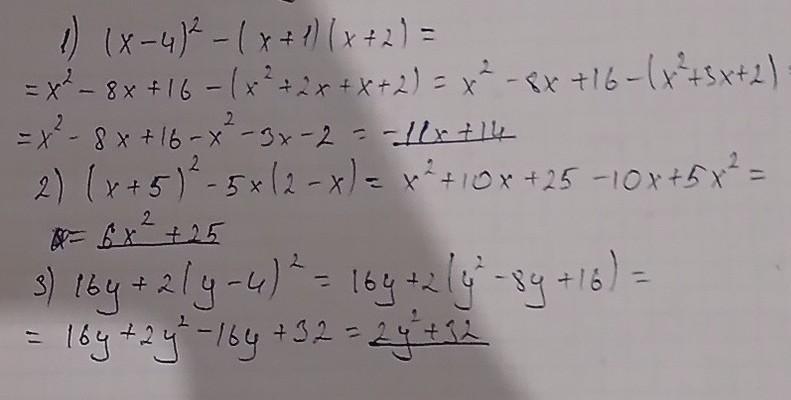 1) (x-4)² - (x+1)(x+2) =
= x² - 8x + 16 - (x² + 2x + x + 2) = x² - 8x + 16 - (x² + 3x + 2) =
= x² - 8x + 16 - x² - 3x - 2 = -11x + 14
2) (x+5)² - 5x(2-x) = x² + 10x + 25 - 10x + 5x² =
= 6x² + 25
3) 16y + 2(y-4)² = 16y + 2(y² - 8y + 16) =
= 16y + 2y² - 16y + 32 = 2y² + 32